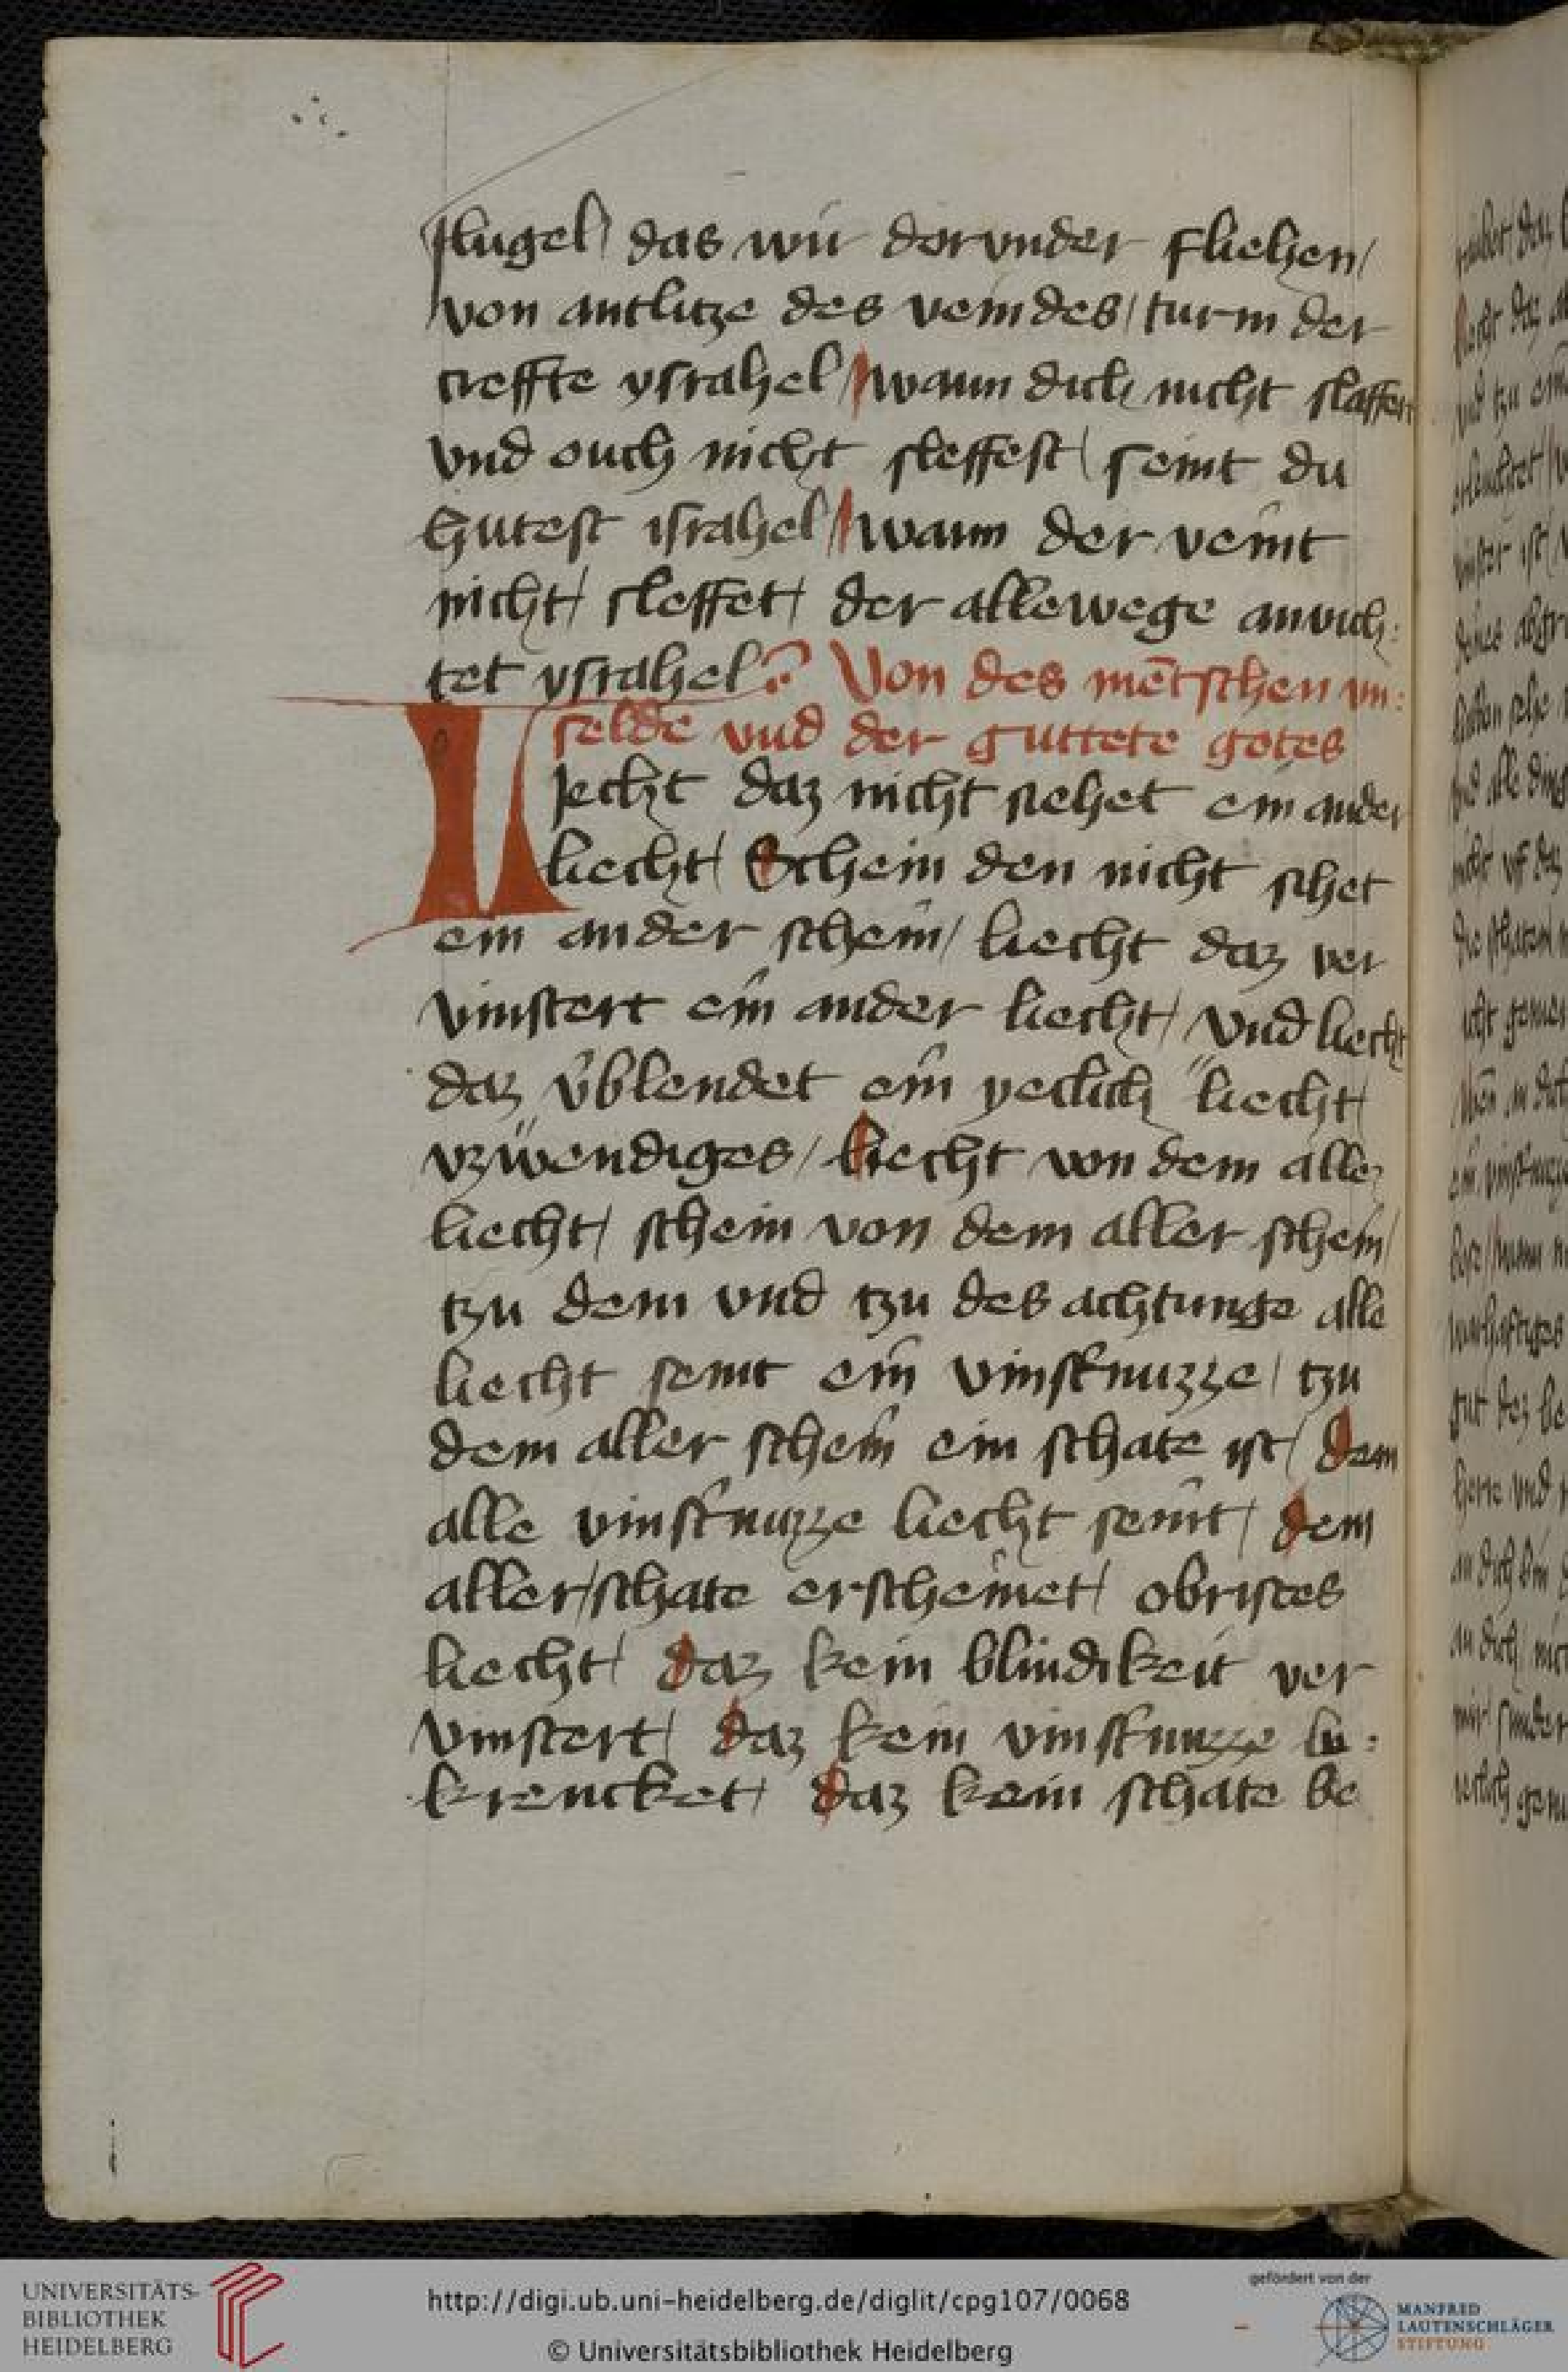 flugel das wir dorunder fliehen/
von antlitze des veindes/ turm der
creffte ysrahel/ wann dich nicht slaffert
vnd ouch nicht sleffest/ seint du
hutest israhel/ wann der veint
nicht/ sleffet/ der allewege anvich:
tet ysrahel? Von des mētschen vn:
selde vnd der guttete gotes
Liecht daz nicht siehet ein ander
liecht/ Schein den nicht sihet
ein ander schein/ liecht daz ver
vinstert ein ander liecht/ vnd liecht
daz v̂blendet ein yeclich liecht/
vzwendiges/ liecht von dem alle
liecht/ schein von dem aller schein/
tzu dem vnd tzu des achtunge alle
liecht seint ein vinsternuzze/ tzu
dem aller schein ein schate ist/ dem
alle vinsternuzze liecht seint/ dem
aller/schate erscheinet/ obristes
liecht/ daz kein blindikeit ver
vinstert/ daz kein vinsternuzze
krencket/ daz kein schate be
UNIVERSITÄTS-
BIBLIOTHEK
HEIDELBERG
http://digi.ub.uni-heidelberg.de/diglit/cpg107/0068
© Universitätsbibliothek Heidelberg
gefördert von der
MANFRED
LAUTENSCHLÄGER
STIFTUNG